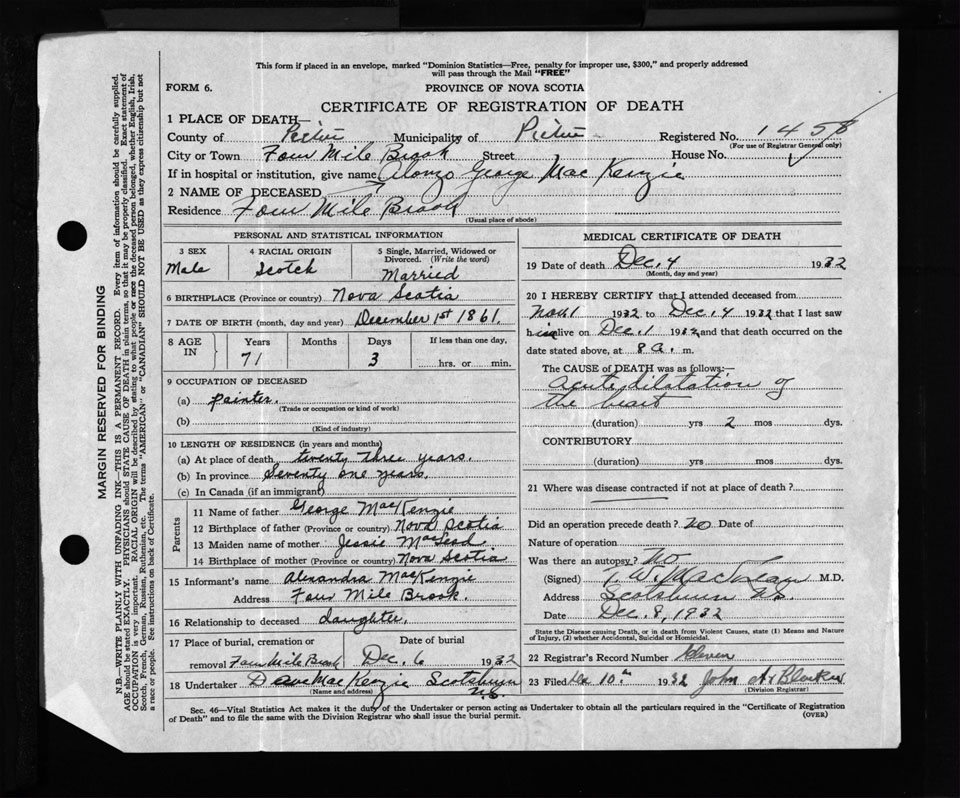 This form if placed in an envelope, marked "Dominion Statistics—Free, penalty for improper use, $300," and properly addressed
will pass through the Mail "FREE"
FORM 6.
PROVINCE OF NOVA SCOTIA
CERTIFICATE OF REGISTRATION OF DEATH
1 PLACE OF DEATH—
County of Pictou Municipality of Pictou Registered No. 1458
(For use of Registrar General only)
City or Town Four Mile Brook Street House No.
If in hospital or institution, give name Alonzo George MacKenzie
2 NAME OF DECEASED
Residence Four Mile Brook
(Usual place of abode)
PERSONAL AND STATISTICAL INFORMATION
3 SEX 4 RACIAL ORIGIN 5 Single, Married, Widowed or
Divorced. (Write the word)
Male Scotch Married
6 BIRTHPLACE (Province or country) Nova Scotia
7 DATE OF BIRTH (month, day and year) December 1st 1861.
8 AGE IN Years Months Days If less than one day,
71 3 hrs. or min.
9 OCCUPATION OF DECEASED
(a) painter.
(Trade or occupation or kind of work)
(b)
(Kind of industry)
10 LENGTH OF RESIDENCE (in years and months)
(a) At place of death twenty three years.
(b) In province Seventy one years.
(c) In Canada (if an immigrant)
Parents
11 Name of father George MacKenzie
12 Birthplace of father (Province or country) Nova Scotia
13 Maiden name of mother Jessie MacLeod
14 Birthplace of mother (Province or country) Nova Scotia
15 Informant's name Alexandra MacKenzie
Address Four Mile Brook.
16 Relationship to deceased daughter.
17 Place of burial, cremation or Date of burial
removal Four Mile Brook Dec. 6 1932
18 Undertaker Dave MacKenzie Scotsburn
N.S.
(Name and address)
MEDICAL CERTIFICATE OF DEATH
19 Date of death Dec. 4 1932
(Month, day and year)
20 I HEREBY CERTIFY that I attended deceased from
Nov 1 1932 to Dec. 4 1932 that I last saw
him alive on Dec. 1 1932 and that death occurred on the
date stated above, at 8 a. m.
The CAUSE of DEATH was as follows:—
Acute dilatation of
the heart
(duration) yrs 2 mos dys.
CONTRIBUTORY
(duration) yrs. mos. dys.
21 Where was disease contracted if not at place of death?
Did an operation precede death? No Date of
Nature of operation
Was there an autopsy? No
(Signed) MacLean M.D.
Address Scotsburn N.S.
Date Dec. 8, 1932
State the Disease causing Death, or in death from Violent Causes, state (1) Means and Nature
of Injury, (2) whether Accidental, Suicidal or Homicidal.
22 Registrar's Record Number Eleven
23 Filed Dec 10th 1932 John
(Division Registrar)
Sec. 46—Vital Statistics Act makes it the duty of the Undertaker or person acting as Undertaker to obtain all the particulars required in the "Certificate of Registration
of Death" and to file the same with the Division Registrar who shall issue the burial permit.
(OVER)
MARGIN RESERVED FOR BINDING
N.B.—WRITE PLAINLY WITH UNFADING INK—THIS IS A PERMANENT RECORD. Every item of information should be carefully supplied.
AGE should be stated EXACTLY. PHYSICIANS should STATE CAUSE OF DEATH in plain terms, so that it may be properly classified. Exact statement of
OCCUPATION is very important. RACIAL ORIGIN will be described by stating to what people or race the deceased person belonged, whether English, Irish,
Scotch, French, German, Russian, Ruthenian, etc. The terms "AMERICAN" or "CANADIAN" SHOULD NOT BE USED as they express citizenship but not
a race or people. See instructions on back of Certificate.